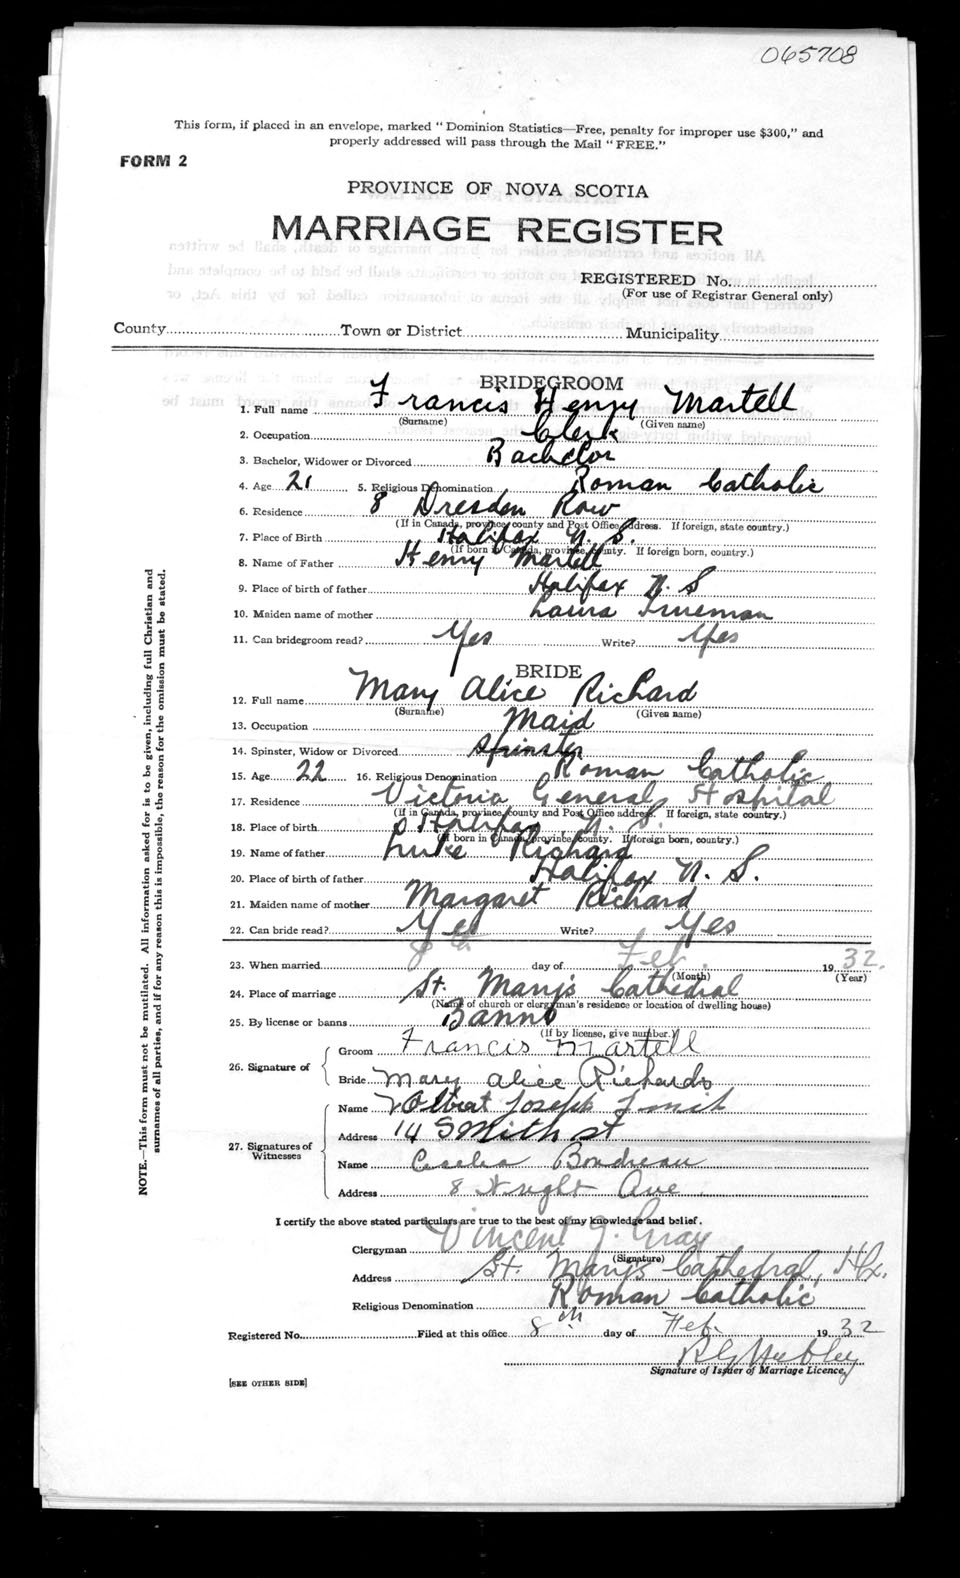 065708
This form, if placed in an envelope, marked "Dominion Statistics—Free, penalty for improper use $300," and
properly addressed will pass through the Mail "FREE."
FORM 2
PROVINCE OF NOVA SCOTIA
MARRIAGE REGISTER
REGISTERED No.
(For use of Registrar General only)
County Town or District Municipality
BRIDEGROOM
1. Full name Francis Henry Martell
(Surname) (Given name)
2. Occupation Clerk
3. Bachelor, Widower or Divorced Bachelor
4. Age 21 5. Religious Denomination Roman Catholic
6. Residence 8 Dresden Row
(If in Canada, province, county and Post Office address. If foreign, state country.)
7. Place of Birth Halifax N. S.
(If born in Canada, province, county. If foreign born, country.)
8. Name of Father Henry Martell
9. Place of birth of father Halifax N. S
10. Maiden name of mother Laura Trueman
11. Can bridegroom read? Yes Write? Yes
BRIDE
12. Full name Mary Alice Richard
(Surname) (Given name)
13. Occupation Maid
14. Spinster, Widow or Divorced Spinster
15. Age 22 16. Religious Denomination Roman Catholic
17. Residence Victoria General Hospital
(If in Canada, province, county and Post Office address. If foreign, state country.)
18. Place of birth Halifax N. S.
(If born in Canada, province, county. If foreign born, country.)
19. Name of father Luke Richard
20. Place of birth of father Halifax N. S.
21. Maiden name of mother Margaret Richard
22. Can bride read? Yes Write? Yes
23. When married 8th day of Feb. 1932.
(Month) (Year)
24. Place of marriage St. Mary's Cathedral
(Name of church or clergyman's residence or location of dwelling house)
25. By license or banns Banns
(If by license, give number.)
26. Signature of
Groom Francis Martell
Bride Mary Alice Richards
27. Signatures of Witnesses
Name Joseph
Address 14 Smith st
Name Boudreau
Address 8 Wright Ave
I certify the above stated particulars are true to the best of my knowledge and belief.
Clergyman Vincent J. Gray
(Signature)
Address St. Mary's Cathedral, Hfx.
Religious Denomination Roman Catholic
Registered No. Filed at this office 8th day of Feb. 1932
Signature of Issuer of Marriage Licence
[SEE OTHER SIDE]
NOTE.—This form must not be mutilated. All information asked for is to be given, including full Christian and
surnames of all parties, and if for any reason this is impossible, the reason for the omission must be stated.